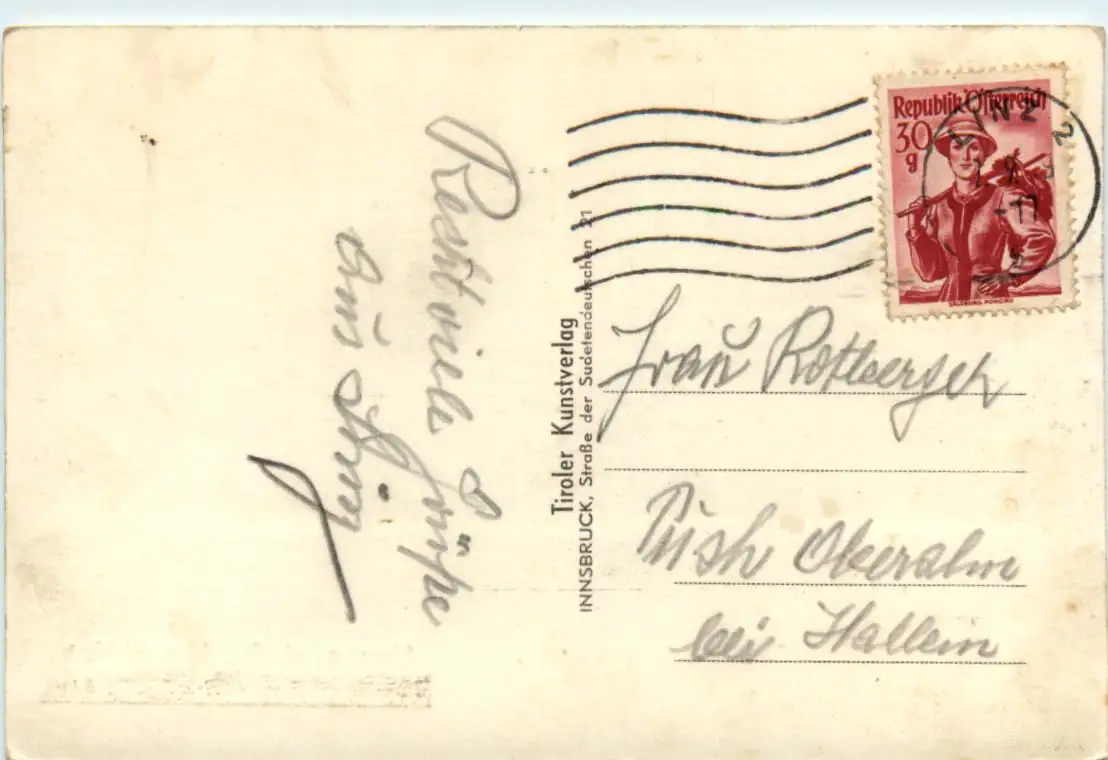 Recht viele Grüße
aus Linz
Tiroler Kunstverlag
INNSBRUCK, Straße der Sudetendeutschen 21
Republik Österreich
30
g
LINZ 2
-17
SALZBURG, PONGAU
Frau Rottberger
Oberalm
bei Hallein